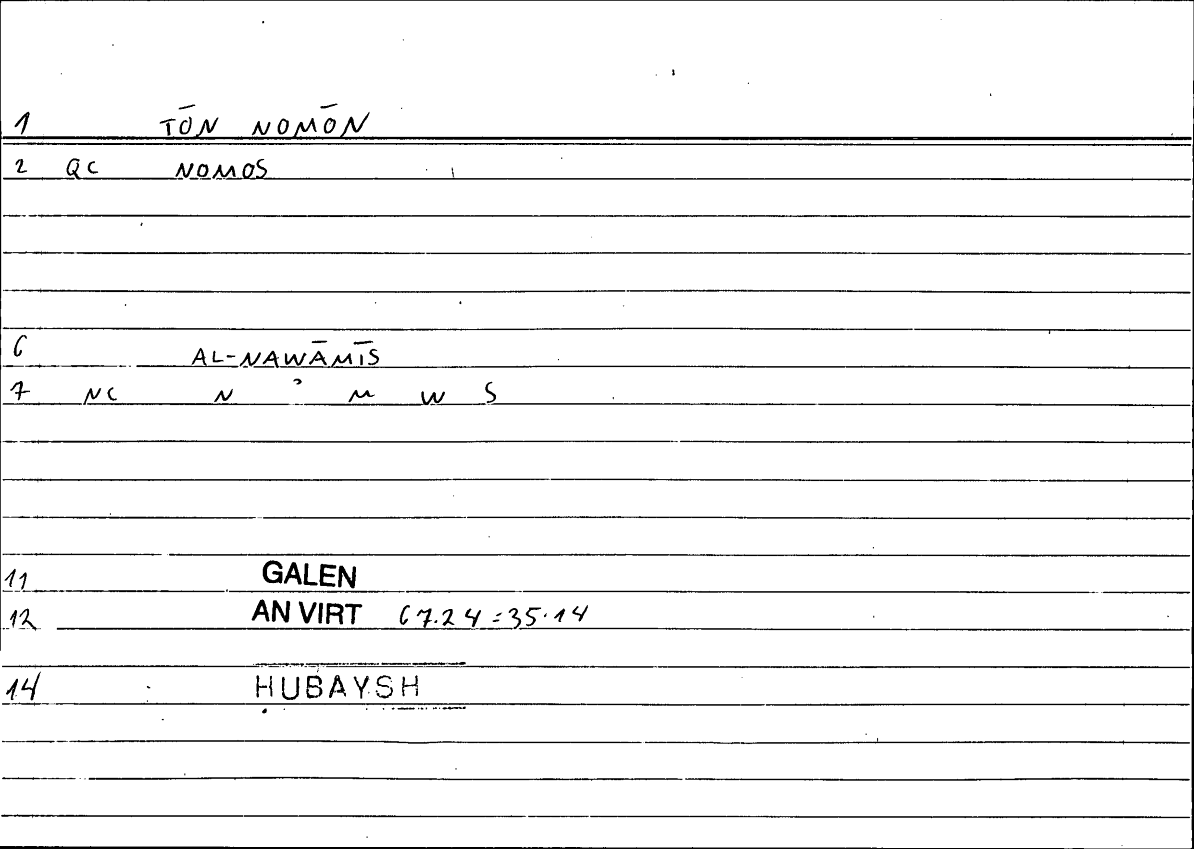 1 TŌN NOMŌN
2 QC NOMOS
6 AL-NAWĀMĪS
7 NC N ʾ M W S
11 GALEN
12 AN VIRT 67.24=35.14
14 ḤUBAYSH